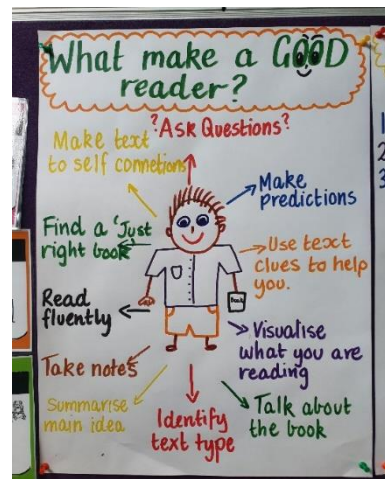 What make a GOOD
reader?
?Ask Questions?
Make text
to self connetions
Make
predictions
Find a 'Just
right book'
Use text
clues to help
you.
Read
fluently
Book
Visualise
what you are
reading
Take notes
Summarise
main idea
Identify
text type
Talk about
the book
1
2
3